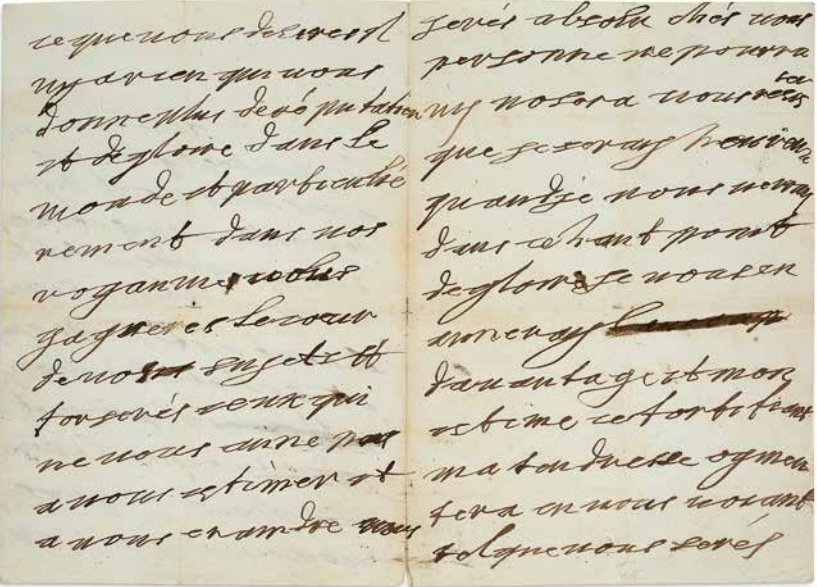 ce que vous deserés il
ny a rien qui vous
donne plus de réputation
et de gloire dans le
monde et particulie
rement dans vos
royaumes vous
gagneres le coeur
de vos sugets et
forserés ceux qui
ne vous aime pas
a vous estimer et
a vous craindre vous
serés absolu chés vous
personne ne pourra
ny nosera vous
que je seray heureuse
quand je vous verray
dans ce haut point
de gloire je vous en
aimeray
davantage et mon
estime
ma tendresse ogmen
tera en vous voiant
tel que vous serés